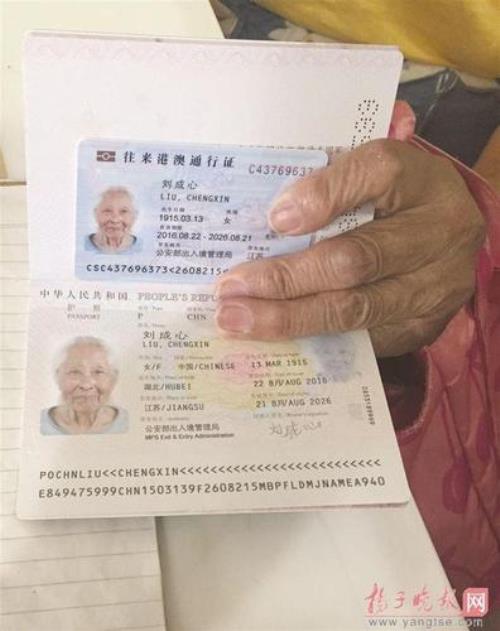 往来港澳通行证
C43769637
刘成心
LIU, CHENGXIN
出生日期 性别
1915.03.13 女
有效期限
2016.08.22 - 2026.08.21
签发机关
公安部出入境管理局 江苏
CSC437696373<2608215
中华人民共和国 PEOPLE'S REPU
护 照
PASSPORT P CHN
刘成心
LIU, CHENGXIN
女/F 中国/CHINESE 13 MAR 1915
湖北/HUBEI 22 8月/AUG 2016
江苏/JIANGSU 21 8月/AUG 2026
公安部出入境管理局
MPS Exit & Entry Administration
刘成心
POCHNLIU<<CHENGXIN<<<<<<<<<<<<<<<<<<<<<<<<<<
E849475999CHN1503139F2608215MBPFLDMJNAMEA940
扬子晚报网
www.yangtse.com